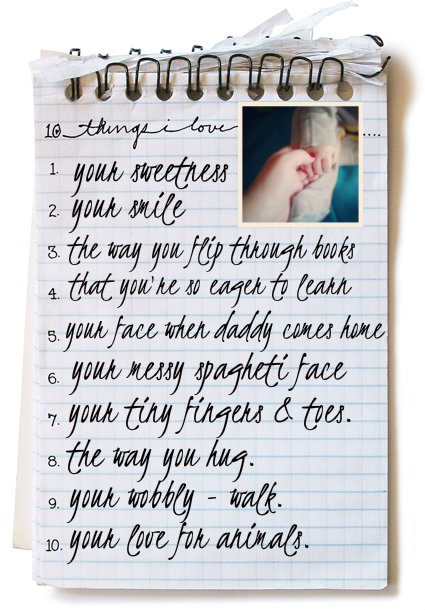 10 things i love ....
1. your sweetness
2. your smile
3. the way you flip through books
4. that you're so eager to learn
5. your face when daddy comes home
6. your messy spagheti face
7. your tiny fingers & toes.
8. the way you hug.
9. your wobbly - walk.
10. your love for animals.